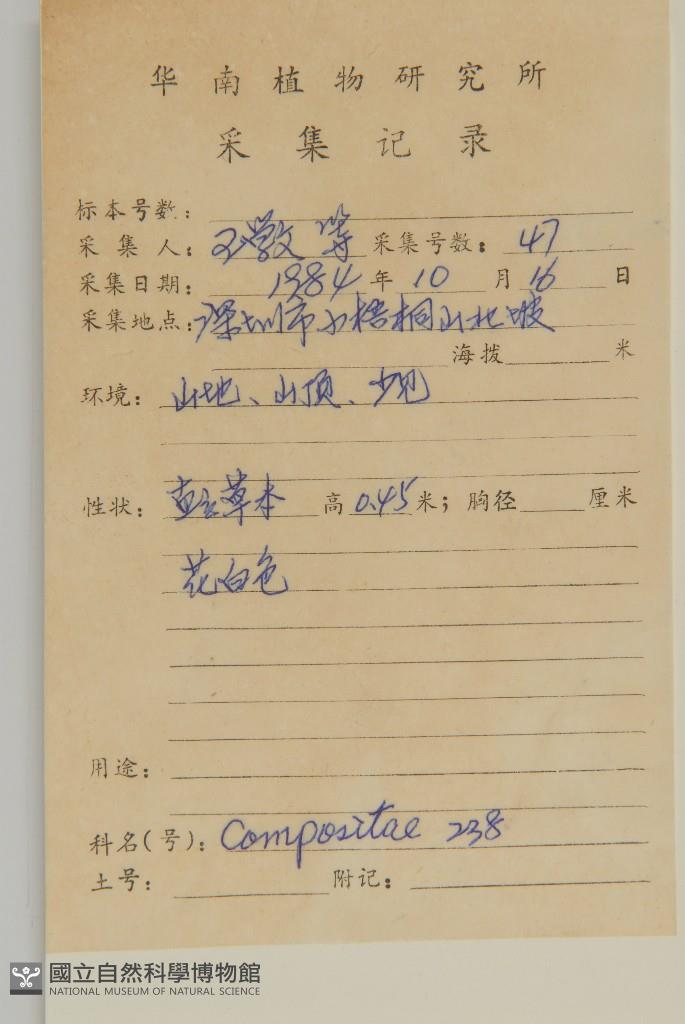 华南植物研究所
采集记录
标本号数：
采集人：王学文等 采集号数：47
采集日期：1984年10月16日
采集地点：深圳市小梧桐山北坡
海拨 米
环境：山地、山顶、少见
性状：直立草本 高0.45米；胸径 厘米
花白色
用途：
科名(号)：Compositae 238
土号： 附记：
國立自然科學博物館
NATIONAL MUSEUM OF NATURAL SCIENCE